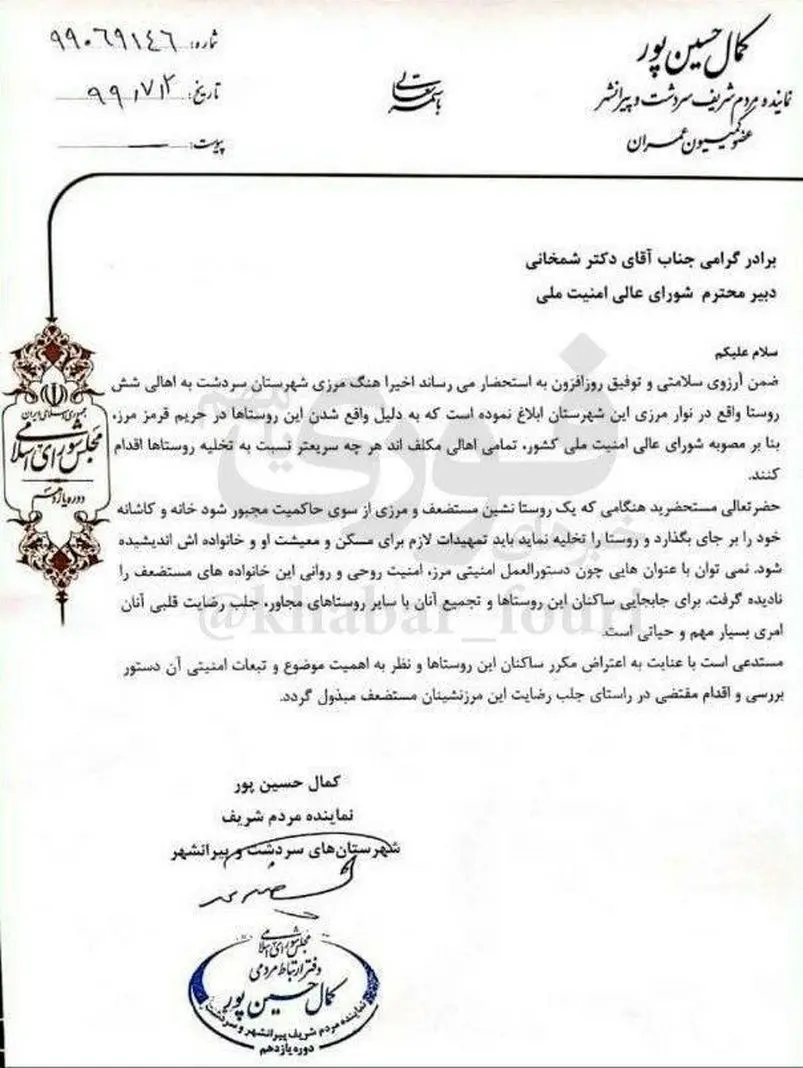 کمال حسین پور
نماینده مردم شریف سردشت و پیرانشهر
عضو کمیسیون عمران
باسمه تعالی
شماره: ۹۹۰۶۹۱۴۶
تاریخ: ۹۹/۷/۲
پیوست:
برادر گرامی جناب آقای دکتر شمخانی
دبیر محترم شورای عالی امنیت ملی
سلام علیکم
ضمن آرزوی سلامتی و توفیق روزافزون به استحضار می رساند اخیرا هنگ مرزی شهرستان سردشت به اهالی شش
روستا واقع در نوار مرزی این شهرستان ابلاغ نموده است که به دلیل واقع شدن این روستاها در حریم قرمز مرز،
بنا بر مصوبه شورای عالی امنیت ملی کشور، تمامی اهالی مکلف اند هر چه سریعتر نسبت به تخلیه روستاها اقدام
کنند.
حضرتعالی مستحضرید هنگامی که یک روستا نشین مستضعف و مرزی از سوی حاکمیت مجبور شود خانه و کاشانه
خود را بر جای بگذارد و روستا را تخلیه نماید باید تمهیدات لازم برای مسکن و معیشت او و خانواده اش اندیشیده
شود. نمی توان با عنوان هایی چون دستورالعمل امنیتی مرز، امنیت روحی و روانی این خانواده های مستضعف را
نادیده گرفت. برای جابجایی ساکنان این روستاها و تجمیع آنان با سایر روستاهای مجاور، جلب رضایت قلبی آنان
امری بسیار مهم و حیاتی است.
مستدعی است با عنایت به اعتراض مکرر ساکنان این روستاها و نظر به اهمیت موضوع و تبعات امنیتی آن دستور
بررسی و اقدام مقتضی در راستای جلب رضایت این مرزنشینان مستضعف مبذول گردد.
جمهوری اسلامی ایران
مجلس شورای اسلامی
دوره یازدهم
فوری
خبرهای
@khabar_fouri
کمال حسین پور
نماینده مردم شریف
شهرستان‌های سردشت و پیرانشهر
مجلس شورای اسلامی
دفتر ارتباط مردمی
کمال حسین پور
نماینده مردم شریف پیرانشهر و سردشت
دوره یازدهم